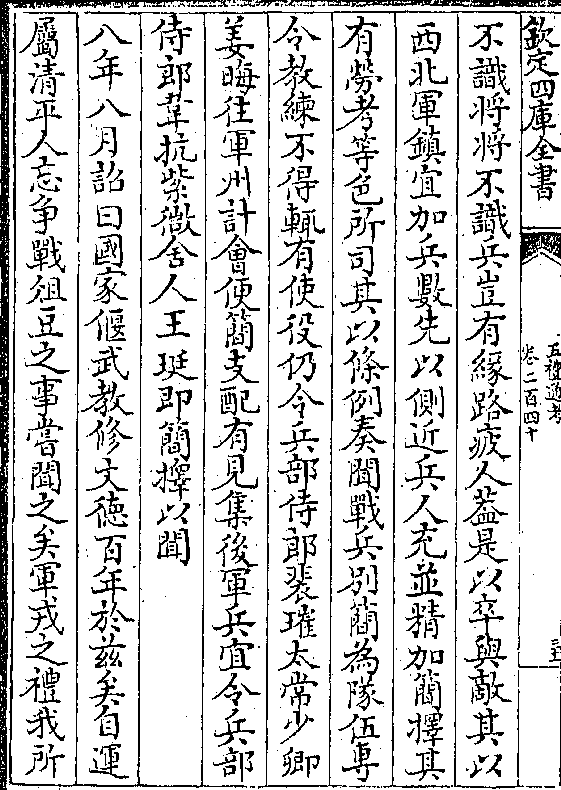 欽定四庫全書
五禮通考
卷二百四十
不識將將不識兵豈有緣路疲人葢是以卒與敵其以
西北軍鎮宜加兵數先以側近兵人充並精加簡擇其
有勞考等色所司其以條例奏聞戰兵别簡為隊伍專
令教練不得輒有使役仍令兵部侍郎裴璀太常少卿
姜晦往軍州計會便簡支配有見集後軍兵宜令兵部
侍郎韋抗紫微舍人王珽即簡擇以聞
八年八月詔曰國家偃武教修文徳百年於兹矣自運
屬清平人忘争戰俎豆之事嘗聞之矣軍戎之禮我所